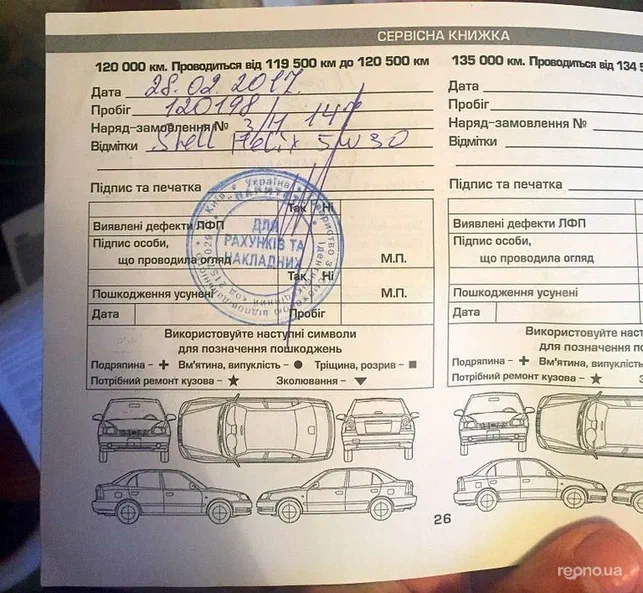 СЕРВІСНА КНИЖКА
120 000 км. Проводиться від 119 500 км до 120 500 км
Дата 28.02.2017.
Пробіг 120198
Наряд-замовлення №
Відмітки Shell Helix 5w30
Підпис та печатка
Так Ні
Виявлені дефекти ЛФП
Підпис особи,
що проводила огляд М.П.
Так Ні
Пошкодження усунені М.П.
Дата Пробіг
Використовуйте наступні символи
для позначення пошкоджень
Подряпина - Вм'ятина, випуклість - Тріщина, розрив -
Потрібний ремонт кузова - Зколювання -
Україна
Київ
ДЛЯ
РАХУНКІВ ТА
НАКЛАДНИХ
135 000 км. Проводиться від 134 5
Дата
Пробіг
Наряд-замовлення №
Відмітки
Підпис та печатка
Виявлені дефекти ЛФП
Підпис особи,
що проводила огляд
Пошкодження усунені
Дата
Використовуйте
для позначення по
Подряпина - Вм'ятина, вип
Потрібний ремонт кузова -
26
repno.ua